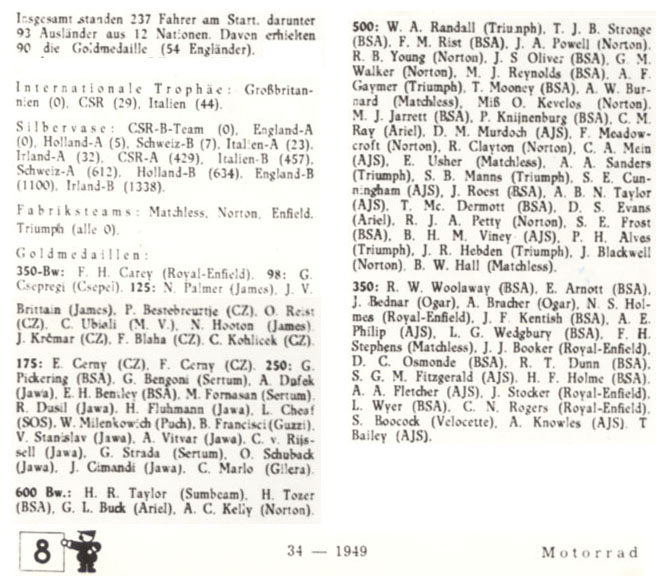 Insgesamt standen 237 Fahrer am Start, darunter
93 Ausländer aus 12 Nationen. Davon erhielten
90 die Goldmedaille (54 Engländer).
Internationale Trophäe: Großbritan-
nien (0), CSR (29), Italien (44).
Silbervase: CSR-B-Team (0), England-A
(0), Holland-A (5), Schweiz-B (7), Italien-A (23).
Irland-A (32), CSR-A (429), Italien-B (457),
Schweiz-A (612), Holland-B (634), England-B
(1100), Irland-B (1338).
Fabriksteams: Matchless, Norton, Enfield,
Triumph (alle 0).
Goldmedaillen:
350-Bw: F. H. Carey (Royal-Enfield). 98: G.
Csepregi (Csepel). 125: N. Palmer (James), J. V.
Brittain (James), P. Bestebreurtje (CZ), O. Reist
(CZ), C. Ubiali (M. V.), N. Hooton (James)
J. Krčmar (CZ), F. Blaha (CZ), C. Kohlicek (CZ).
175: E. Cerny (CZ), F. Cerny (CZ). 250: G.
Pickering (BSA), G. Bengoni (Sertum), A. Dufek
(Jawa), E. H. Bensley (BSA), M. Fornasan (Sertum),
R. Dusil (Jawa), H. Fluhmann (Jawa), L. Cheaf
(SOS), W. Milenkowich (Puch), B. Francisci (Guzzi),
V. Stanislav (Jawa), A. Vitvar (Jawa), C. v. Rijs-
sell (Jawa), G. Strada (Sertum), O. Schuback
(Jawa), J. Cimandi (Jawa), C. Marlo (Gilera).
600 Bw.: H. R. Taylor (Sumbeam), H. Tozer
(BSA), G. L. Buck (Ariel), A. C. Kelly (Norton).
500: W. A. Randall (Triumph), T. J. B. Stronge
(BSA), F. M. Rist (BSA), J. A. Powell (Norton),
R. B. Young (Norton), J. S Oliver (BSA), G. M.
Walker (Norton), M. J. Reynolds (BSA), A. F.
Gaymer (Triumph), T. Mooney (BSA), A. W. Bur-
nard (Matchless), Miß O. Kevelos (Norton),
M. J. Jarrett (BSA), P. Knijnenburg (BSA), C. M.
Ray (Ariel), D. M. Murdoch (AJS), F. Meadow-
croft (Norton), R. Clayton (Norton), C. A. Mein
(AJS), E. Usher (Matchless), A. A. Sanders
(Triumph), S. B. Manns (Triumph), S. E. Cun-
ningham (AJS), J. Roest (BSA), A. B. N. Taylor
(AJS), T. Mc. Dermott (BSA), D. S. Evans
(Ariel), R. J. A. Petty (Norton), S. E. Frost
(BSA), B. H. M. Viney (AJS), P. H. Alves
(Triumph), J. R. Hebden (Triumph), J. Blackwell
(Norton), B. W. Hall (Matchless).
350: R. W. Woolaway (BSA), E. Arnott (BSA),
J. Bednar (Ogar), A. Bracher (Ogar), N. S. Hol-
mes (Royal-Enfield), J. F. Kentish (BSA), A. E.
Philip (AJS), L. G. Wedgbury (BSA), F. H.
Stephens (Matchless), J. J. Booker (Royal-Enfield),
D. C. Osmonde (BSA), R. T. Dunn (BSA),
S. G. M. Fitzgerald (AJS), H. F. Holme (BSA),
A. A. Fletcher (AJS), J. Stocker (Royal-Enfield),
L. Wyer (BSA), C. N. Rogers (Royal-Enfield),
S. Boocock (Velocette), A. Knowles (AJS), T
Bailey (AJS).
8
34 — 1949
Motorrad